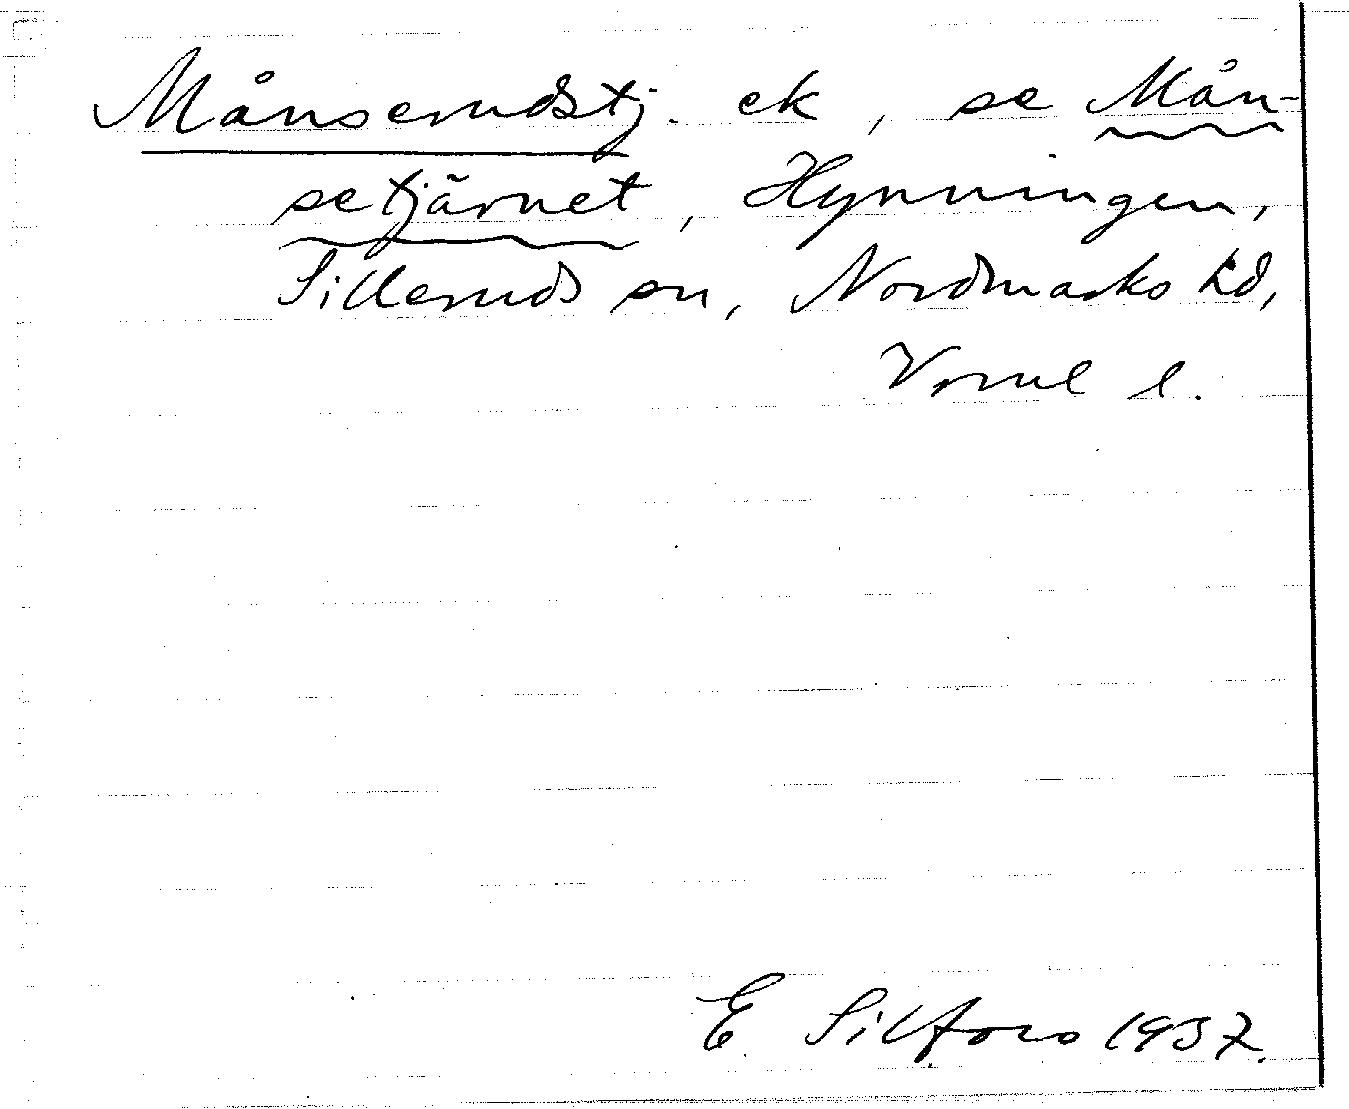 Månserudstj. ek, se Mån-
setjärnet, Hynningen,
Silleruds sn, Nordmarks hd,
Vrml l.
E Silfors 1937.